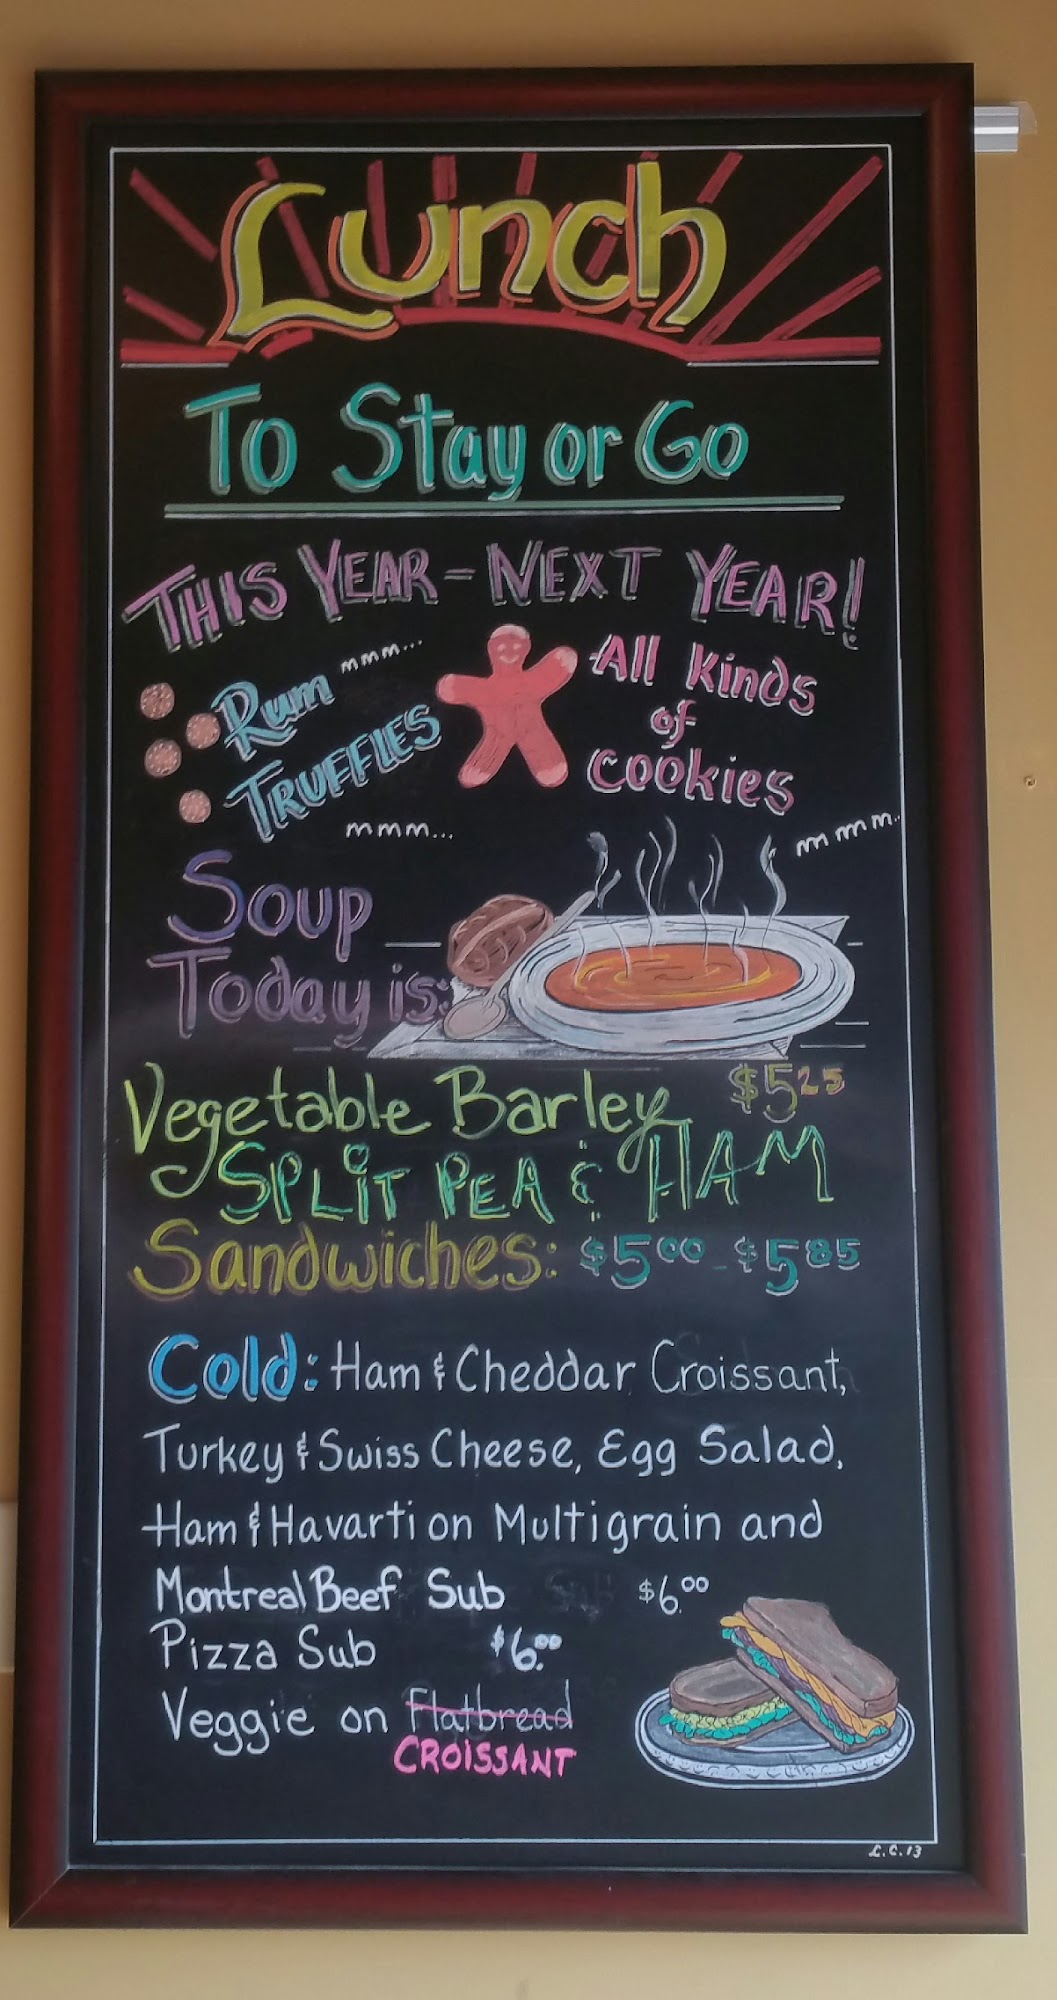 Lunch
To Stay or Go
THIS YEAR - NEXT YEAR!
Rum mmm...
TRUFFLES
mmm...
All Kinds
of
Cookies
mmm..
Soup
Today is:
Vegetable Barley $5.25
SPLIT PEA & HAM
Sandwiches: $5.00 - $5.85
Cold: Ham & Cheddar Croissant,
Turkey & Swiss Cheese, Egg Salad,
Ham & Havarti on Multigrain and
Montreal Beef Sub $6.00
Pizza Sub $6.00
Veggie on Flatbread
CROISSANT
L.C.13